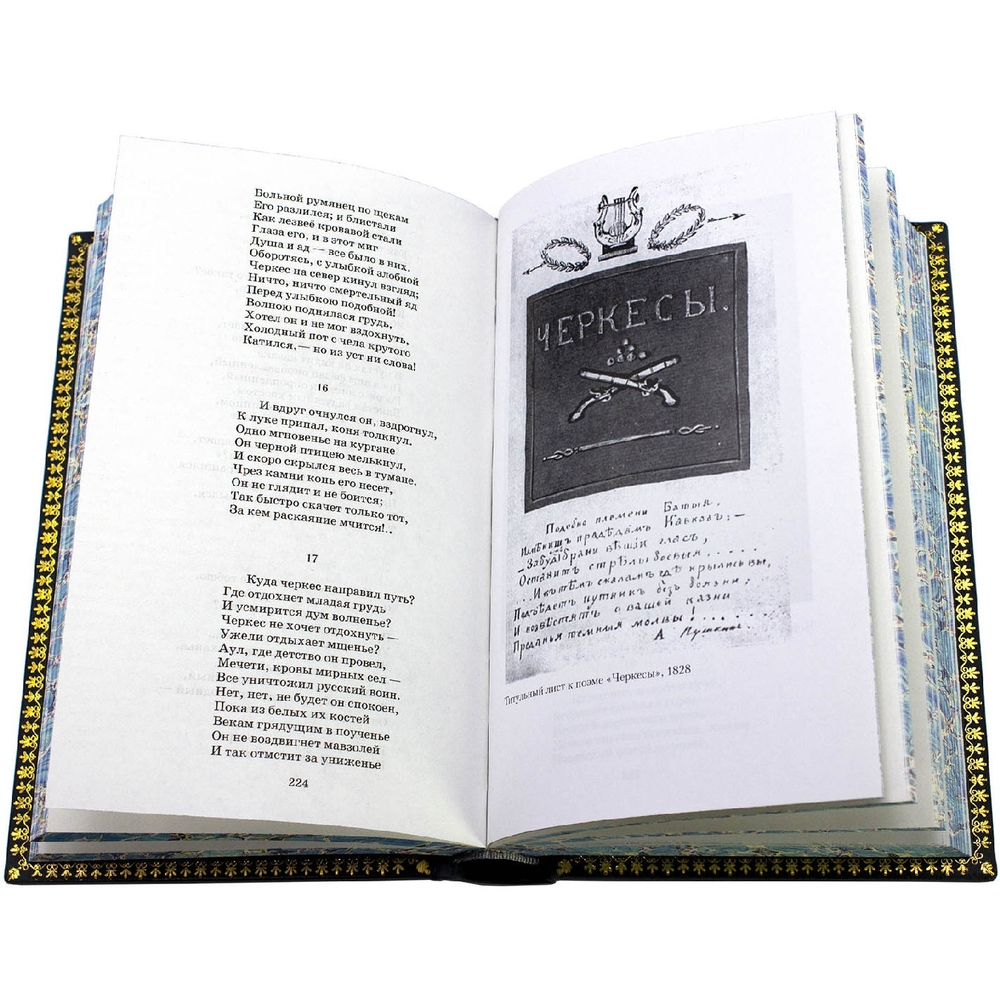 Больной румянец по щекам
Его разлился; и блистали
Как лезвеё кровавой стали
Глаза его, и в этот миг
Душа и ад — все было в них.
Оборотясь, с улыбкой злобной
Черкес на север кинул взгляд;
Ничто, ничто смертельный яд
Перед улыбкою подобной!
Волною поднялася грудь,
Хотел он и не мог вздохнуть,
Холодный пот с чела крутого
Катился,— но из уст ни слова!
16
И вдруг очнулся он, вздрогнул,
К луке припал, коня толкнул.
Одно мгновенье на кургане
Он черной птицею мелькнул,
И скоро скрылся весь в тумане.
Чрез камни конь его несет,
Он не глядит и не боится;
Так быстро скачет только тот,
За кем раскаяние мчится!..
17
Куда черкес направил путь?
Где отдохнет младая грудь
И усмирится дум волненье?
Черкес не хочет отдохнуть —
Ужели отдыхает мщенье?
Аул, где детство он провел,
Мечети, кровы мирных сел —
Все уничтожил русский воин.
Нет, нет, не будет он спокоен,
Пока из белых их костей
Векам грядущим в поученье
Он не воздвигнет мавзолей
И так отмстит за униженье
224
ЧЕРКЕСЫ.
Подобно племени Батыя.
Измѣнишь прадѣдамъ Кавказъ; —
Забудѣ брани вѣщій гласъ,
Оставитъ стрѣлы боевыя.....
...И къ тѣмъ скаламъ гдѣ крылись вы,
Подъѣдетъ путникъ безъ боязни;
И возвѣстятъ о вашей казни
Преданья темныя молвы!...
А. Пушкинъ.
Титульный лист к поэме «Черкесы», 1828